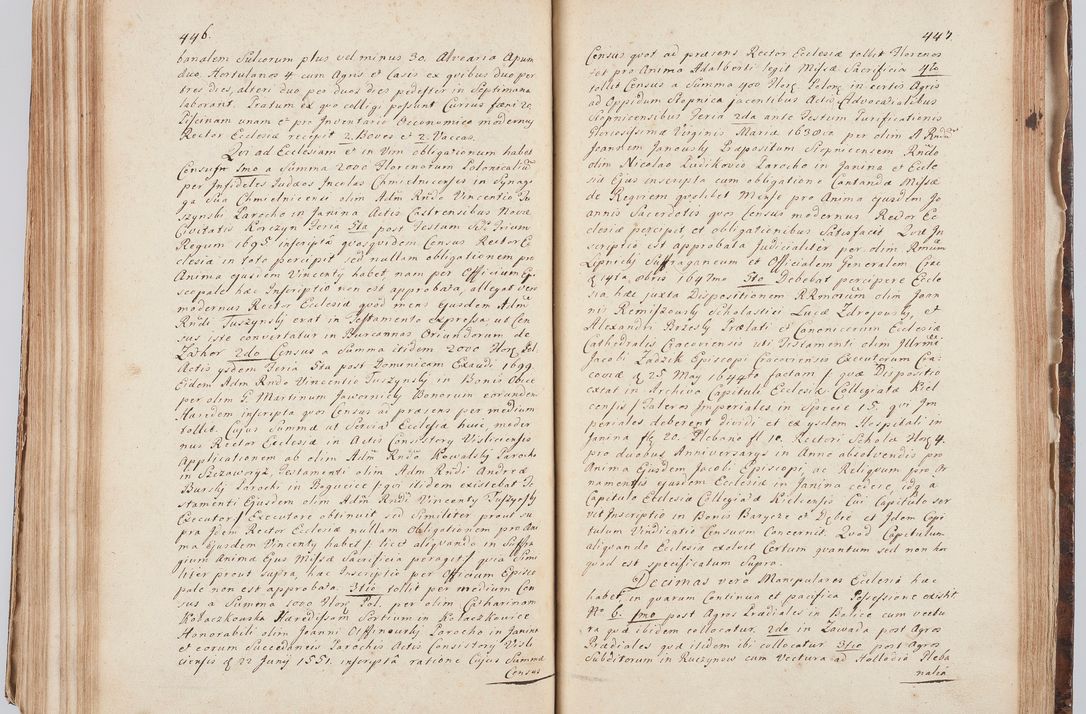 446.
banalem Sulcorum plus vel minus 30. Alvearia Apum
duo, Hortulanos 4 cum Agris et Casis ex quibus duo per
tres dies, alteri duo per duos dies pedestres in Septimana
laborant. Pratum ex quo colligi possunt Currus faeni 20
Piscinam unam et pro Inventario Oeconomico modernus
Rector Ecclesiae recepit 2. Boves et 2. Vaccas.
Qui ad Ecclesiam et in Vim obligationum habet
Census 1mo a Summa 2000 Florenorum Polonicalium
per Infideles Judaeos Incolas Chmielnicenses in Synago
ga Sua Chmielnicensi olim Adm Rndo Vincentio Tu
szynski Parocho in Janina Actis Castrensibus Novae
Civitatis Korczyn Feria 5ta post Festum SS. Trium
Regum 1695 inscripta quosquidem Census Rector E
clesiae in toto percipit, sed nullam obligationem pro
Anima ejusdem Vincenty habet, nam per Officium E
scopale haec Inscriptio non est approbata, allegat vero
modernus Rector Ecclesiae quod mens Ejusdem Adm
Rndi Tuszynski erat in Testamento expressa ut Cen
sus iste convertatur in Oriundorum de
Zathor 2do Census a Summa itidem 2000 Flor Pol.
Actis ysdem Feria 5ta post Dominicam Exaudi 1699
Eidem Adm Rndo Vincentio Tuszynski in Bonis Obice
per olim G. Martinum Jawornicki Bonorum eorundem
Haeredem inscripta quos Census ad praesens per medium
tollit. Cujus Summae ut Servia Ecclesiae huic, moder
nus Rector Ecclesiae in Actis Consistory Visliciensis
Applicationem ab olim Adm Rndo Kowalski Parocho
in Szczaworyz, Testamenti olim Adm Rndi Andreae
Burski Parochi in Bogucice / qui itidem existebat Te
stamenti Ejusdem olim Adm Rndi Vincenty Tuszynski
Executor / Executore obtinuit, sed Similiter prout su
pra Idem Rector Ecclesiae nullam Obligationem pro Ani
ma Ejusdem Vincenty habet / licet aliquando in Suffra
gium Anima Ejus Missae Sacrificia peragit / quia Simi
liter prout Supra, haec Inscriptio per Officium Episco
pale non est approbata. 3tio tollit per medium Cen
sus a Summa 1000 Flor Pol. per olim Catharinam
Kołaczkowska Haeredissam Sortium in Kołaczkowice
Honorabili olim Joanni Parocho in Janina
et eorum Succedaneis Parochis Actis Consistory Visli
ciensis d 22 Juny 1551. inscripta ratione Cujus Summae
Census

447
Census quot ad praesens Rector Ecclesiae tollit Florenos
tot pro Anima Adalberti legit Missae Sacrificia 4to
tollit Census a Summa 400 Flor Polon in certis Agris
ad Oppidum Stopnica jacentibus Actis Advocatialibus
Stopnicensibus Feria 2da ante Festum Purificationis
Gloriosissimae Virginis Mariae 1630io per olim A Rndum
Joannem Janouski Praepositum Stopnicensem Rndo
olim Nicolao Ludikovio Parocho in Janina et Eccle
sia Ejus inscripta cum obligatione Cantandae Missae
de Requiem quolibet Mense pro Anima ejusdem Jo
annis Sacerdotis quos Census modernus Rector Ec
clesiae percipit et obligationibus Satisfacit. Quae In
scriptio est approbata Judicialiter per olim Rmum
Lipnicki Suffraganeum et Officialem Generalem Crac
d 14ta Obris 1647mo 5to Debebat percipere Eccle
sia haec juxta Dispositionem RRmorum olim Joan
nis Remiszouski Scholastici Lucae Zdrojouski, et
Alexandri Brzeski Praelati et Canonicorum Ecclesiae
Cathedralis Cracoviensis uti Testamenti olim Illrmi
Jacobi Zadzik Episcopi Cracoviensis Executorum Cra
coviae d 25 May 1644to factam / quae Dispositio
extat in Archivo Capituli Ecclesiae Collegiatae Kiel
censis / Taleros Imperiales in Specie 15. qui Im
periales deberent dividi et ex ysdem Hospitali in
Janina fl 20. Plebano fl 10. Rectori Scholae Flor 4.
pro duobus Anniversarys in Anno absolvendis pro
Anima Ejusdem Jacobi Episcopi, ac Reliquum pro Or
namentis ejusdem Ecclesiae in Janina cedere, idq a
Capitulo Ecclesiae Collegiatae Kielcensis Cui Capitulo ser
vit Inscriptio in Bonis Barycze et Dębie et Idem Capi
tulum Vindicatio Censuum Concernit. Quod Capitulum
aliquando Ecclesiae exolvit Certum quantum sed non in
quod est specificatum Supra.
Decimas vero Manipulares Ecclesia haec
habet in quarum Continua et pacifica Possessione existit
No 6. 1mo post Agros Praediales in Balice cum vectu
ra quae ibidem collocatur. 2do in Zawada post Agros
Praediales quae itidem ibi collocatur 3tio post Agros
Subditorum in Ruczynow cum Vectura ad Hollodia Pleba
nalia